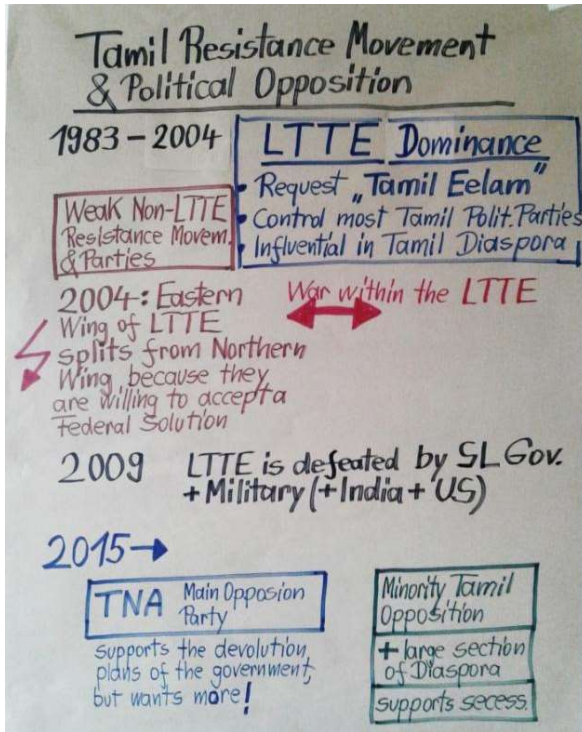 Tamil Resistance Movement
& Political Opposition
1983 – 2004
LTTE Dominance
• Request „Tamil Eelam"
• Control most Tamil Polit. Parties
• Influential in Tamil Diaspora
Weak Non-LTTE
Resistance Movem.
& Parties
2004: Eastern
Wing of LTTE
splits from Northern
Wing, because they
are willing to accept a
Federal Solution
War within the LTTE
2009 LTTE is defeated by SL Gov.
+ Military (+ India + US)
2015 →
TNA Main Opposion
Party
supports the devolution
plans of the government,
but wants more!
Minority Tamil
Opposition
+ large section
of Diaspora
supports secess.